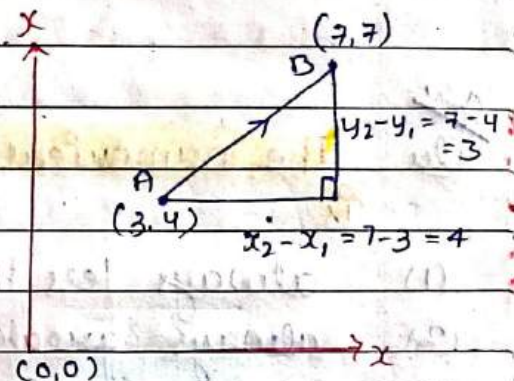 x
(7,7)
B
y₂-y₁ = 7-4
= 3
A
(3,4)
x₂-x₁ = 7-3 = 4
x
(0,0)